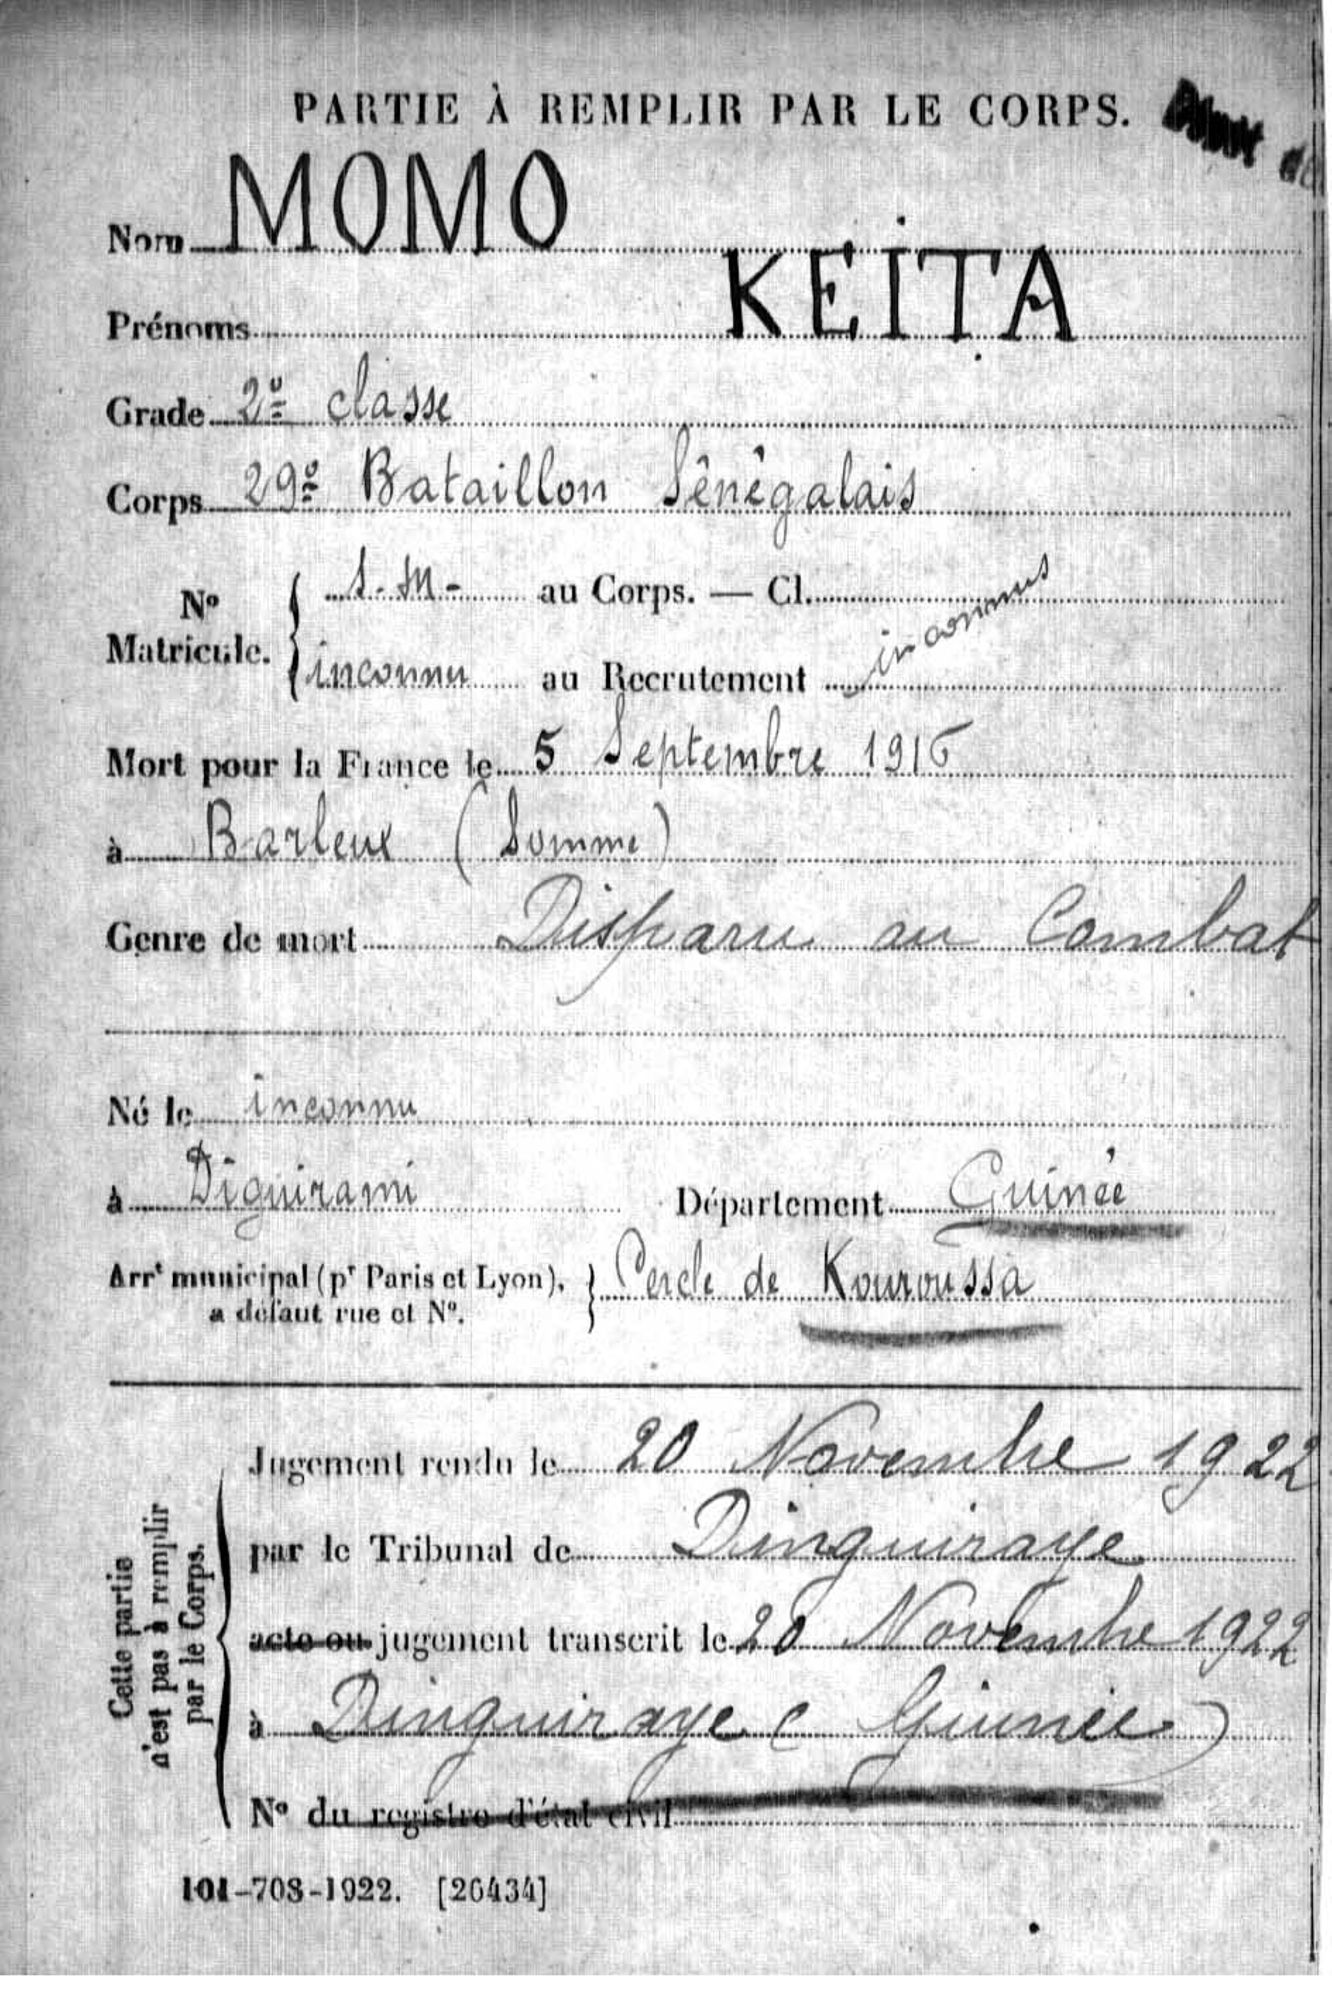 PARTIE À REMPLIR PAR LE CORPS.
Nom MOMO
Prénoms KEITA
Grade 2e classe
Corps 29e Bataillon Sénégalais
No Matricule. { S.M- au Corps. — Cl. inconnus
inconnu au Recrutement
Mort pour la France le 5 Septembre 1916
à Barleux (Somme)
Genre de mort Disparu au Combat
Né le inconnu
à Diguirami Département Guinée
Arrt municipal (pr Paris et Lyon), } Cercle de Kouroussa
a défaut rue et No.
Cette partie n'est pas à remplir par le Corps.
Jugement rendu le 20 Novembre 1922
par le Tribunal de Dinguiraye
acte ou jugement transcrit le 20 Novembre 1922
à Dinguiraye (Guinée)
No du registre d'état civil
101-708-1922. [26434]